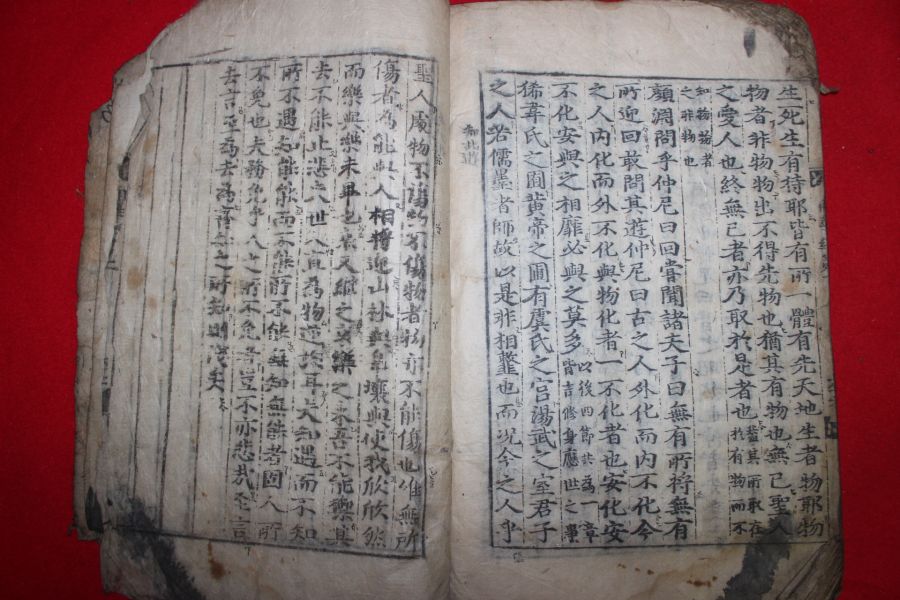 生死生有待耶皆有所一體有先天地生者物耶物
物者非物物出不得先物也猶其有物也無已聖人
之愛人也終無已者亦乃取於是者也
蓋其所取在
於有物而不
知物物者
之非物也
顔淵問乎仲尼曰回嘗聞諸夫子曰無有所將無有
所迎回敢問其遊仲尼曰古之人外化而內不化今
之人內化而外不化與物化者一不化者也安化安
不化安與之相靡必與之莫多
以後四節共為一章
皆言修身應世之事
狶韋氏之囿黃帝之圃有虞氏之宮湯武之室君子
之人若儒墨者師故以是非相䪠也而況今之人乎
聖人處物不傷物不傷物者物亦不能傷也唯無所
傷者為能與人相將迎山林與皐壤與使我欣欣然
而樂與樂未畢也哀又繼之哀樂之來吾不能禦其
去不能止悲夫世人直為物逆旅耳夫知遇而不知
所不遇知能能而不能所不能無知無能者固人所
不免也夫務免乎人之所不免者豈不亦悲哉至言
去言至為去為齊知之所知則淺矣